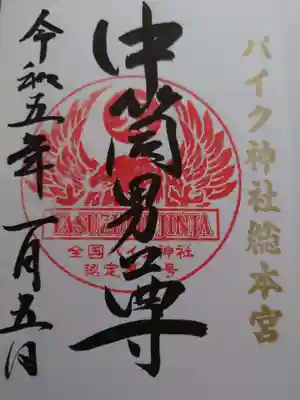 バイク神社総本宮
中筒男尊
令和五年一月五日
YASUZUMI JINJA
全国バイク神社
認定第一号